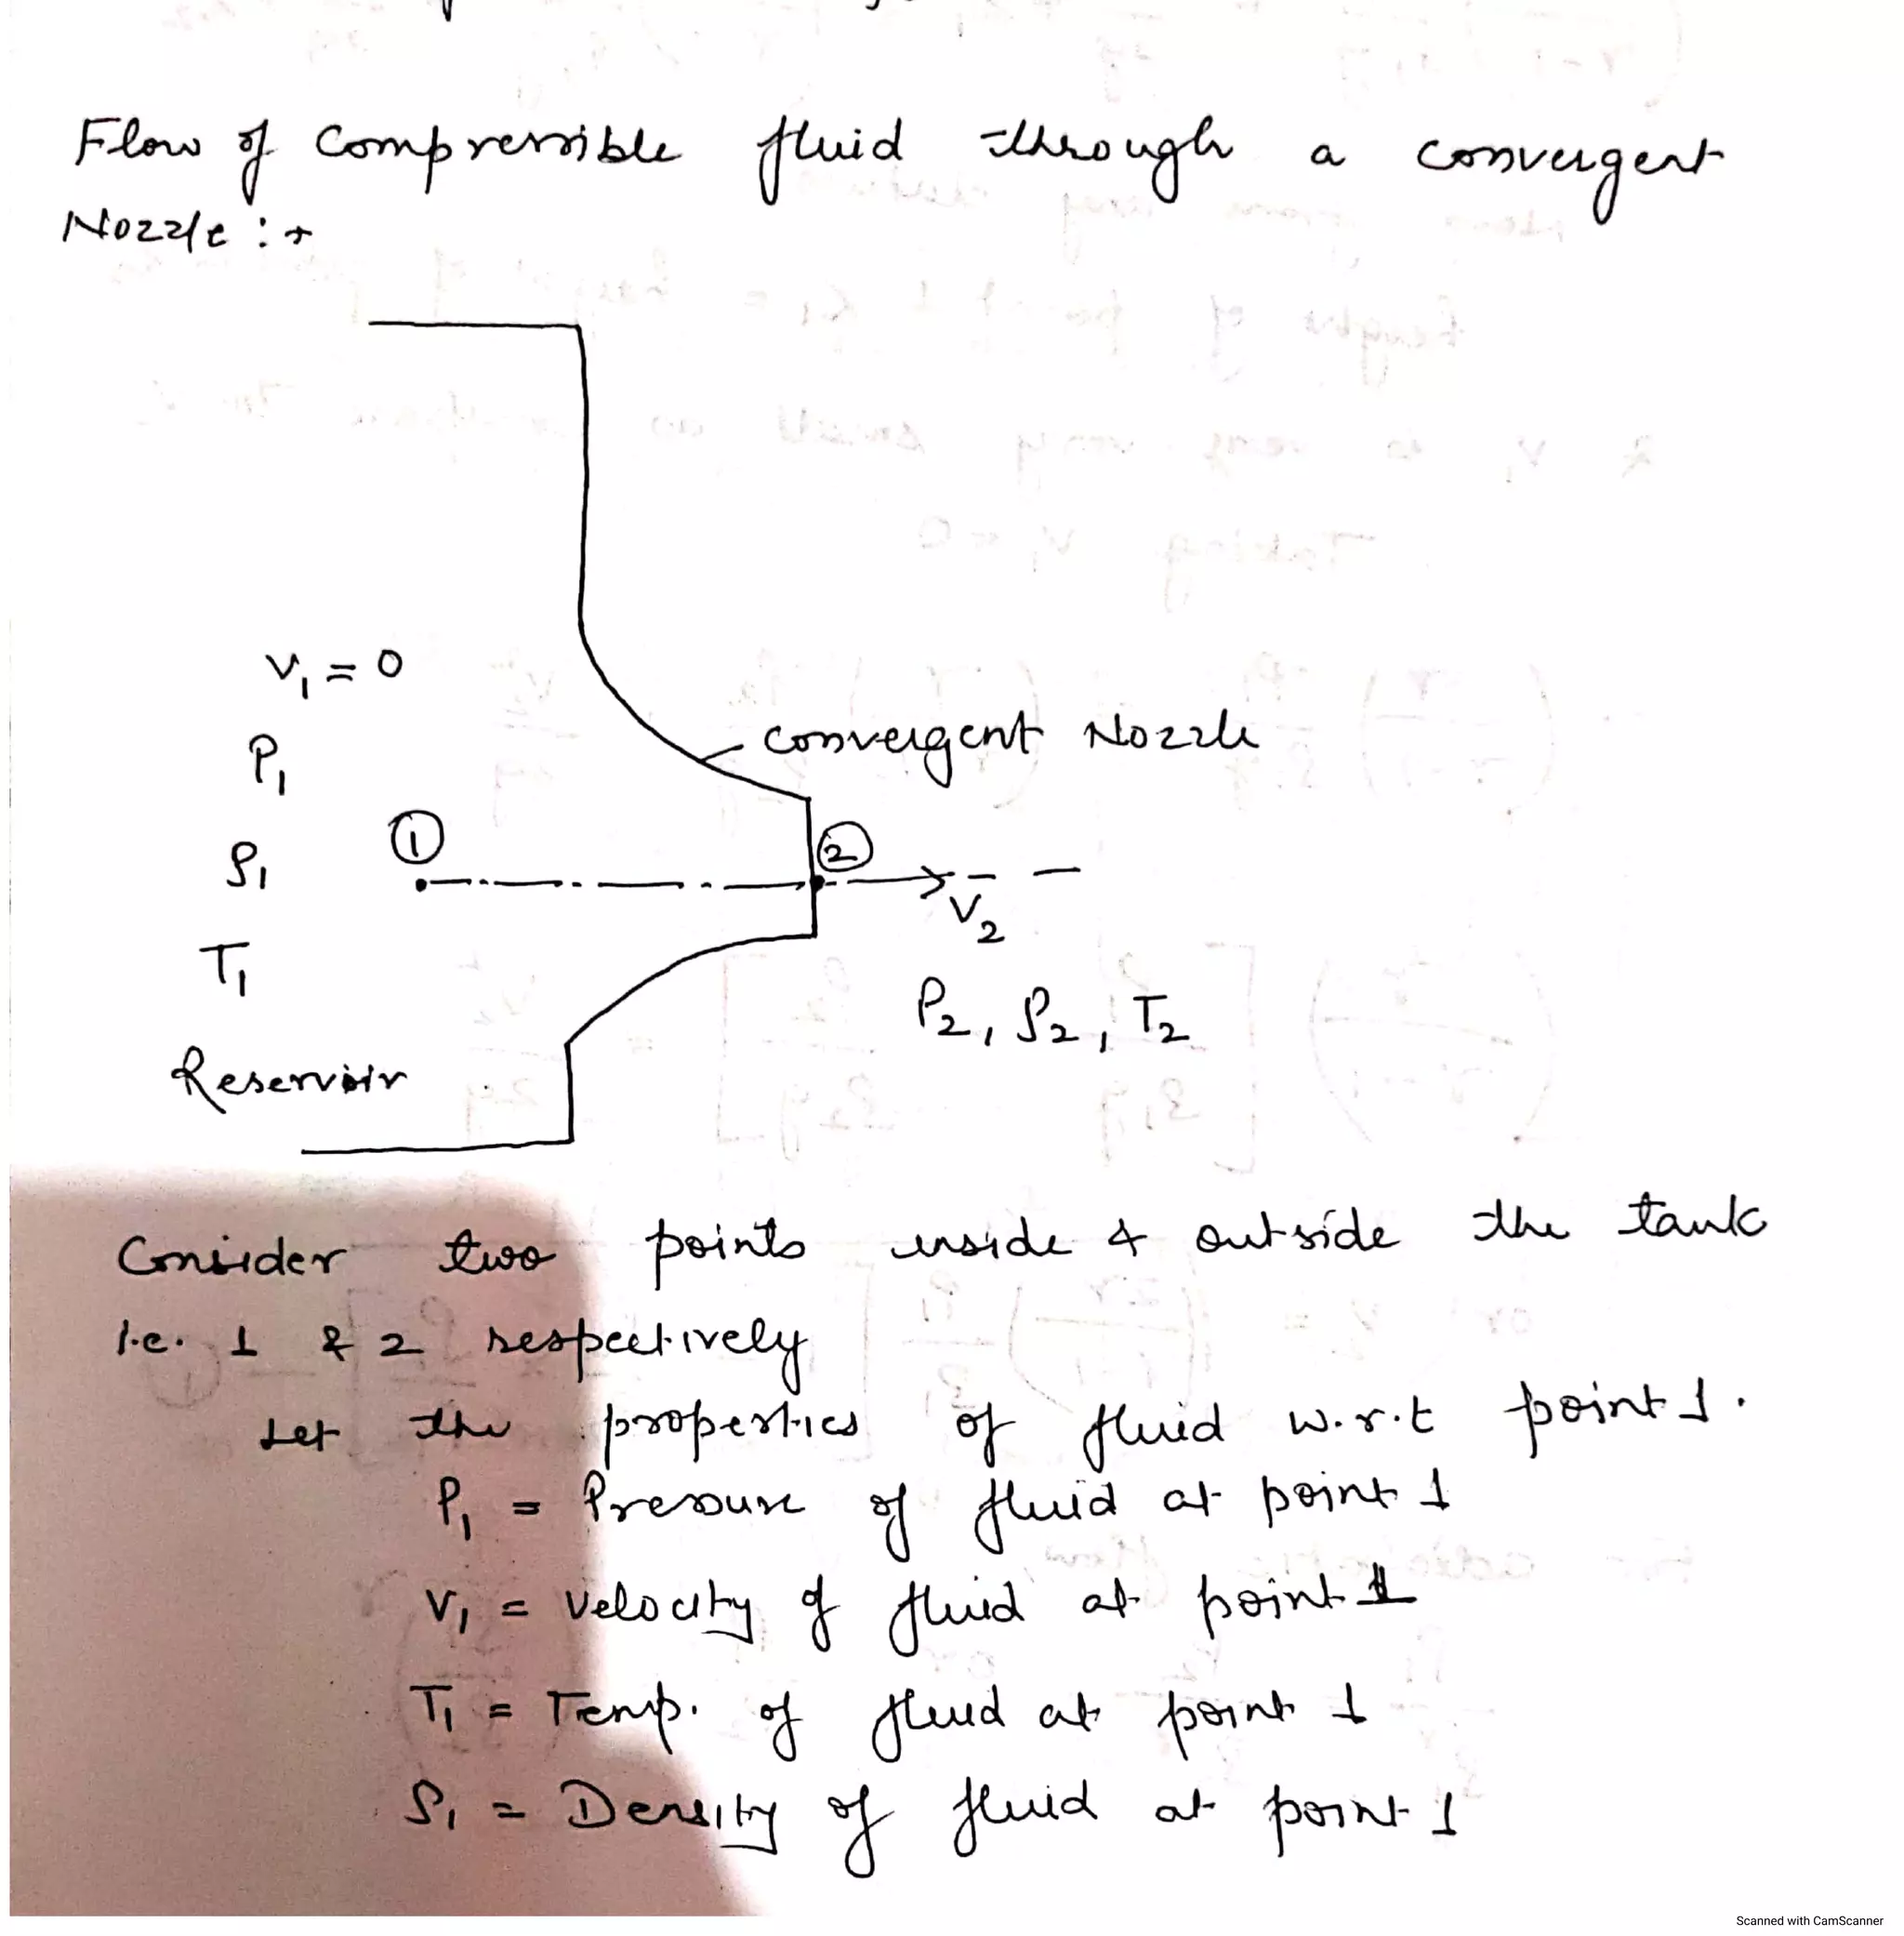 Flow of compressible fluid through a convergent
Nozzle :→
V₁ = 0
P₁
ρ₁
T₁
Reservoir
①
convergent Nozzle
②
V₂
P₂, ρ₂, T₂
Consider two points inside & outside the tank
i.e. 1 & 2 respectively
Let the properties of fluid w.r.t point 1.
P₁ = Pressure of fluid at point 1
V₁ = Velocity of fluid at point 1
T₁ = Temp. of fluid at point 1
ρ₁ = Density of fluid at point 1
Scanned with CamScanner